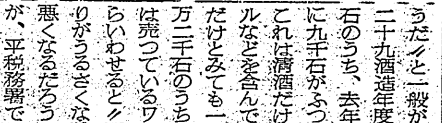 うだ〃と一般が
二十九酒造年度
石のうち、去年
に九千石がふつ
これは清酒だけ
ルなどを含んで
だけとみても一
万二千石のうち
は売つているワ
らいわせると〃
りがうるさくな
悪くなるだろう
が、平税務署で